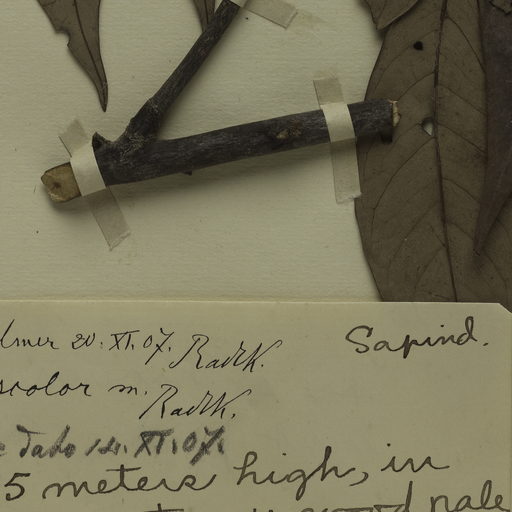 lmer 20. XI. 07. Radlk. Sapind.
scolor m. Radlk.
dato 14. XI. 07.
5 meters high, in
wood pale